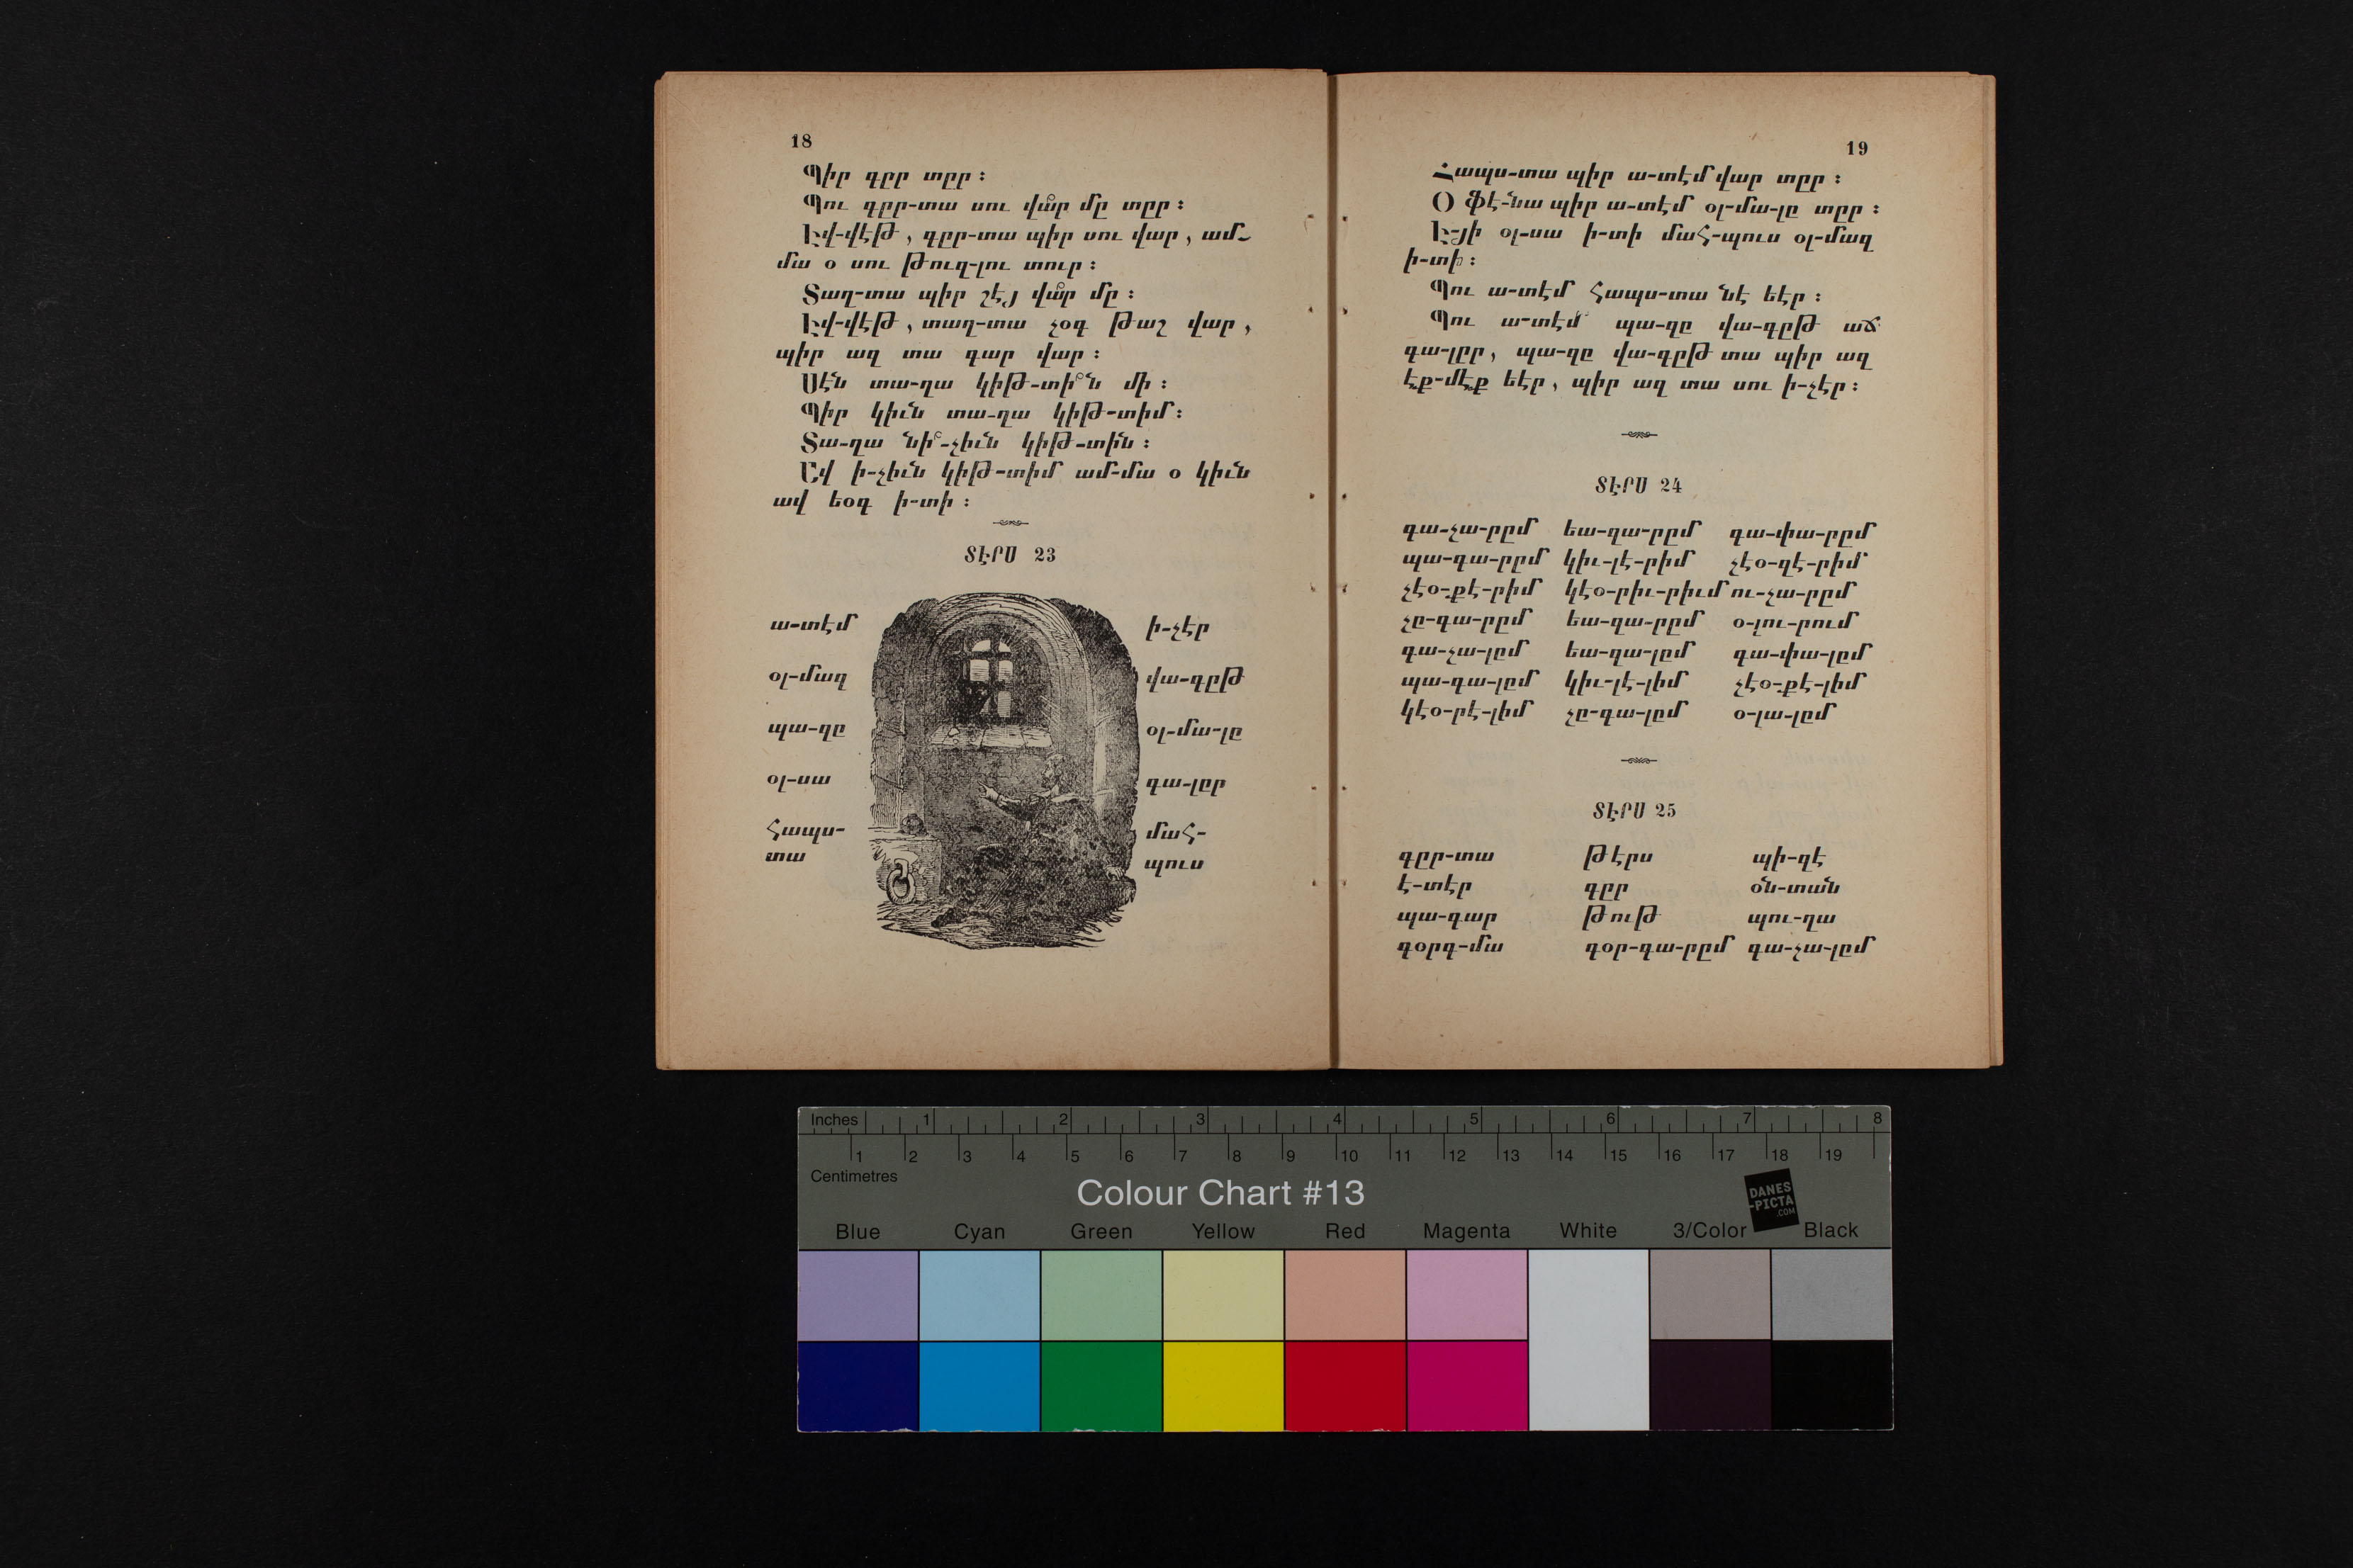 18
Պիր գըր տըր ։
Պու գըր-տա սու վա՞ր մը տըր ։
Էվ-վէթ , գըր-տա պիր սու վար , ամ-
մա օ սու թուզ-լու տուր ։
Տաղ-տա պիր շէյ վա՞ր մը ։
Էվ-վէթ , տաղ-տա չօգ թաշ վար ,
պիր ազ տա գար վար ։
Սէն տա-ղա կիթ-տի՞ն մի ։
Պիր կիւն տա-ղա կիթ-տիմ ։
Տա-ղա նի՞-չիւն կիթ-տին ։
Ավ ի-չիւն կիթ-տիմ ամ-մա օ կիւն
ավ եօգ ի-տի ։
ՏԷՐՍ 23
ա-տէմ ի-չէր
օլ-մազ վա-գըթ
պա-զը օլ-մա-լը
օլ-սա գա-լըր
հապս- մահ-
տա պուս
19
Հապս-տա պիր ա-տէմ վար տըր ։
Օ ֆէ-նա պիր ա-տէմ օլ-մա-լը տըր ։
Է-յի օլ-սա ի-տի մահ-պուս օլ-մազ
ի-տի ։
Պու ա-տէմ հապս-տա նէ եէր ։
Պու ա-տէմ պա-զը վա-գըթ աճ
գա-լըր , պա-զը վա-գըթ տա պիր ազ
էք-մէք եէր , պիր ազ տա սու ի-չէր ։
ՏԷՐՍ 24
գա-չա-րըմ եա-զա-րըմ գա-փա-րըմ
պա-գա-րըմ կիւ-լէ-րիմ չէօ-զէ-րիմ
չէօ-քէ-րիմ կէօ-րիւ-րիւմ ու-չա-րըմ
չը-գա-րըմ եա-ղա-րըմ օ-լու-րում
գա-չա-լըմ եա-զա-լըմ գա-փա-լըմ
պա-գա-լըմ կիւ-լէ-լիմ չէօ-քէ-լիմ
կէօ-րէ-լիմ չը-գա-լըմ օ-լա-լըմ
ՏԷՐՍ 25
գըր-տա թէրս պի-զէ
է-տէր գըր օն-տան
պա-գար թութ պու-ղա
գօրգ-մա գօր-գա-րըմ գա-չա-լըմ
Inches 1 2 3 4 5 6 7 8
1 2 3 4 5 6 7 8 9 10 11 12 13 14 15 16 17 18 19
Centimetres
Colour Chart #13
DANES
-PICTA
.COM
Blue Cyan Green Yellow Red Magenta White 3/Color Black